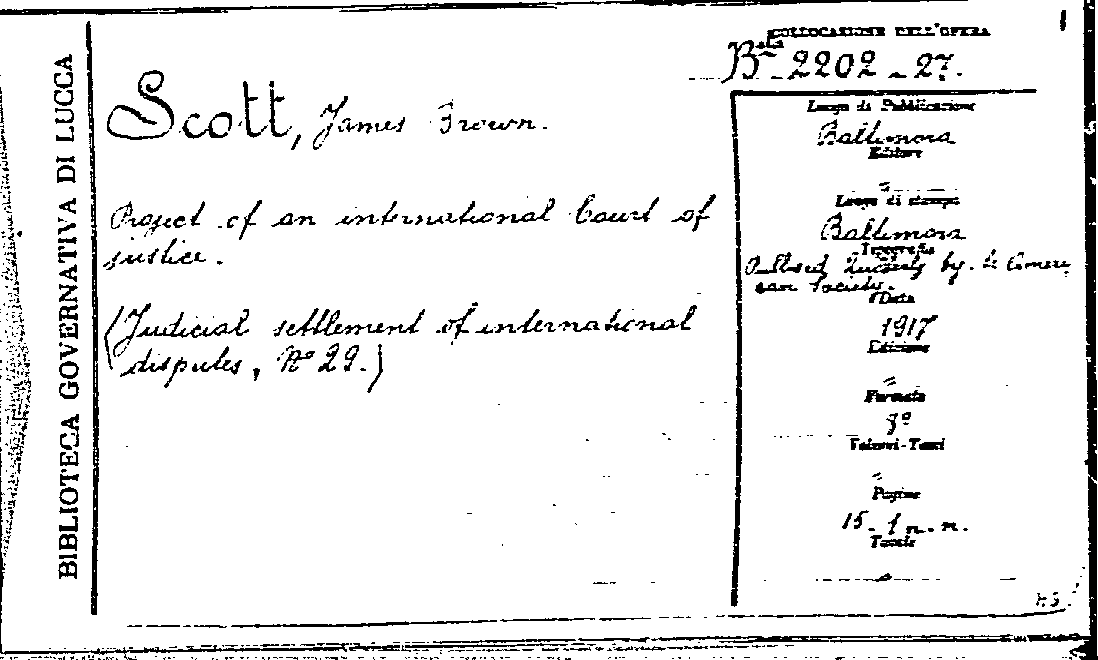 BIBLIOTECA GOVERNATIVA DI LUCCA
Scott, James Brown.
Project of an international Court of
justice.
(Judicial settlement of international
disputes, N° 29.)
COLLOCAZIONE DELL'OPERA
B.ta 2202 - 27.
Luogo di Pubblicazione
Baltimora
Editore
=
Luogo di stampa
Baltimora
Tipografia
quarterly by
Society.
Data
1917
Edizione
=
Formato
8°
Volumi-Tomi
=
Pagine
15-1 n. n.
Tavole